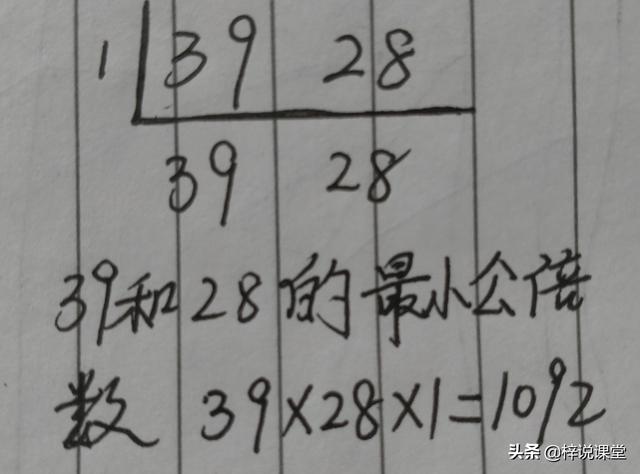 1 39 28
39 28
39和28的最小公倍
数 39×28×1=1092
头条 @梓说课堂